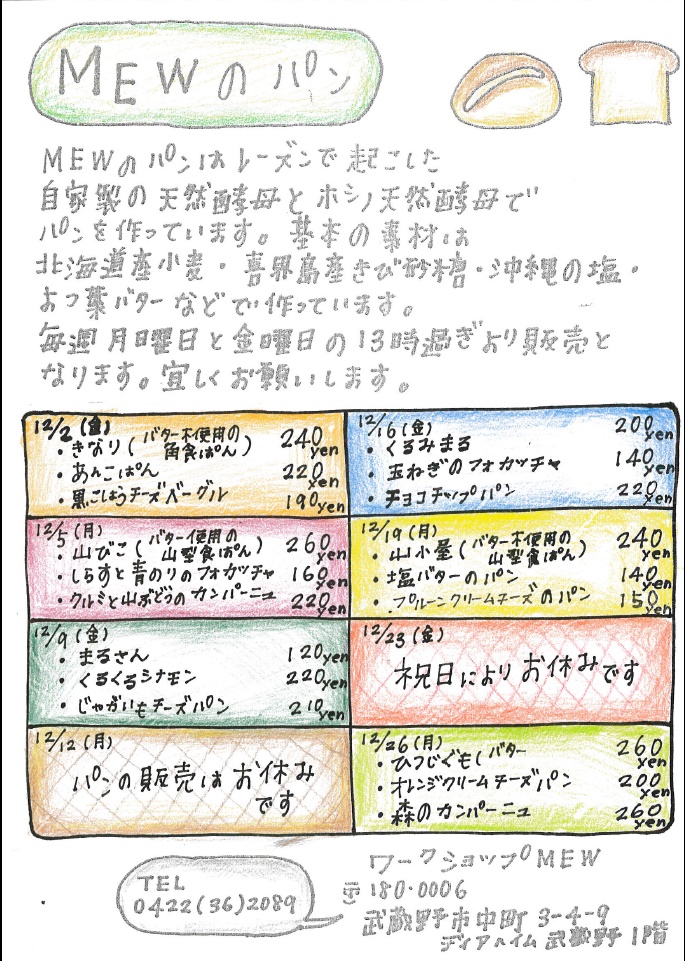 MEWの パン
MEWの パンは レーズンで 起こした
自家製の 天然酵母と ホシノ天然酵母で
パンを作っています。基本の 素材は
北海道産小麦・喜界島産きび砂糖・沖縄の塩・
よつ葉バター などで 作っています。
毎週 月曜日と金曜日の 13時過ぎより販売と
なります。宜しくお願いします。
12/2(金)
・きなり(バター不使用の 角食ぱん) 240yen
・あんこぱん 220yen
・黒こしょうチーズベーグル 190yen
12/5(月)
・山びこ(バター使用の 山型食ぱん) 260yen
・しらすと青のりのフォカッチャ 160yen
・クルミと山ぶどうの カンパーニュ 220yen
12/9(金)
・まるさん 120yen
・くるくるシナモン 220yen
・じゃがいもチーズパン 210yen
12/12(月)
パンの販売は お休み
です
12/16(金)
・くるみまる 200yen
・玉ねぎのフォカッチャ 140yen
・チョコチップパン 220yen
12/19(月)
・山小屋(バター不使用の 山型食ぱん) 240yen
・塩バターのパン 140yen
・プルーンクリームチーズのパン 150yen
12/23(金)
祝日により お休みです
12/26(月)
・ひつじぐも(バター 260yen
・オレンジクリームチーズパン 200yen
・森のカンパーニュ 260yen
TEL
0422(36)2089
ワークショップMEW
〒180-0006
武蔵野市中町 3-4-9
ディアハイム 武蔵野 1階